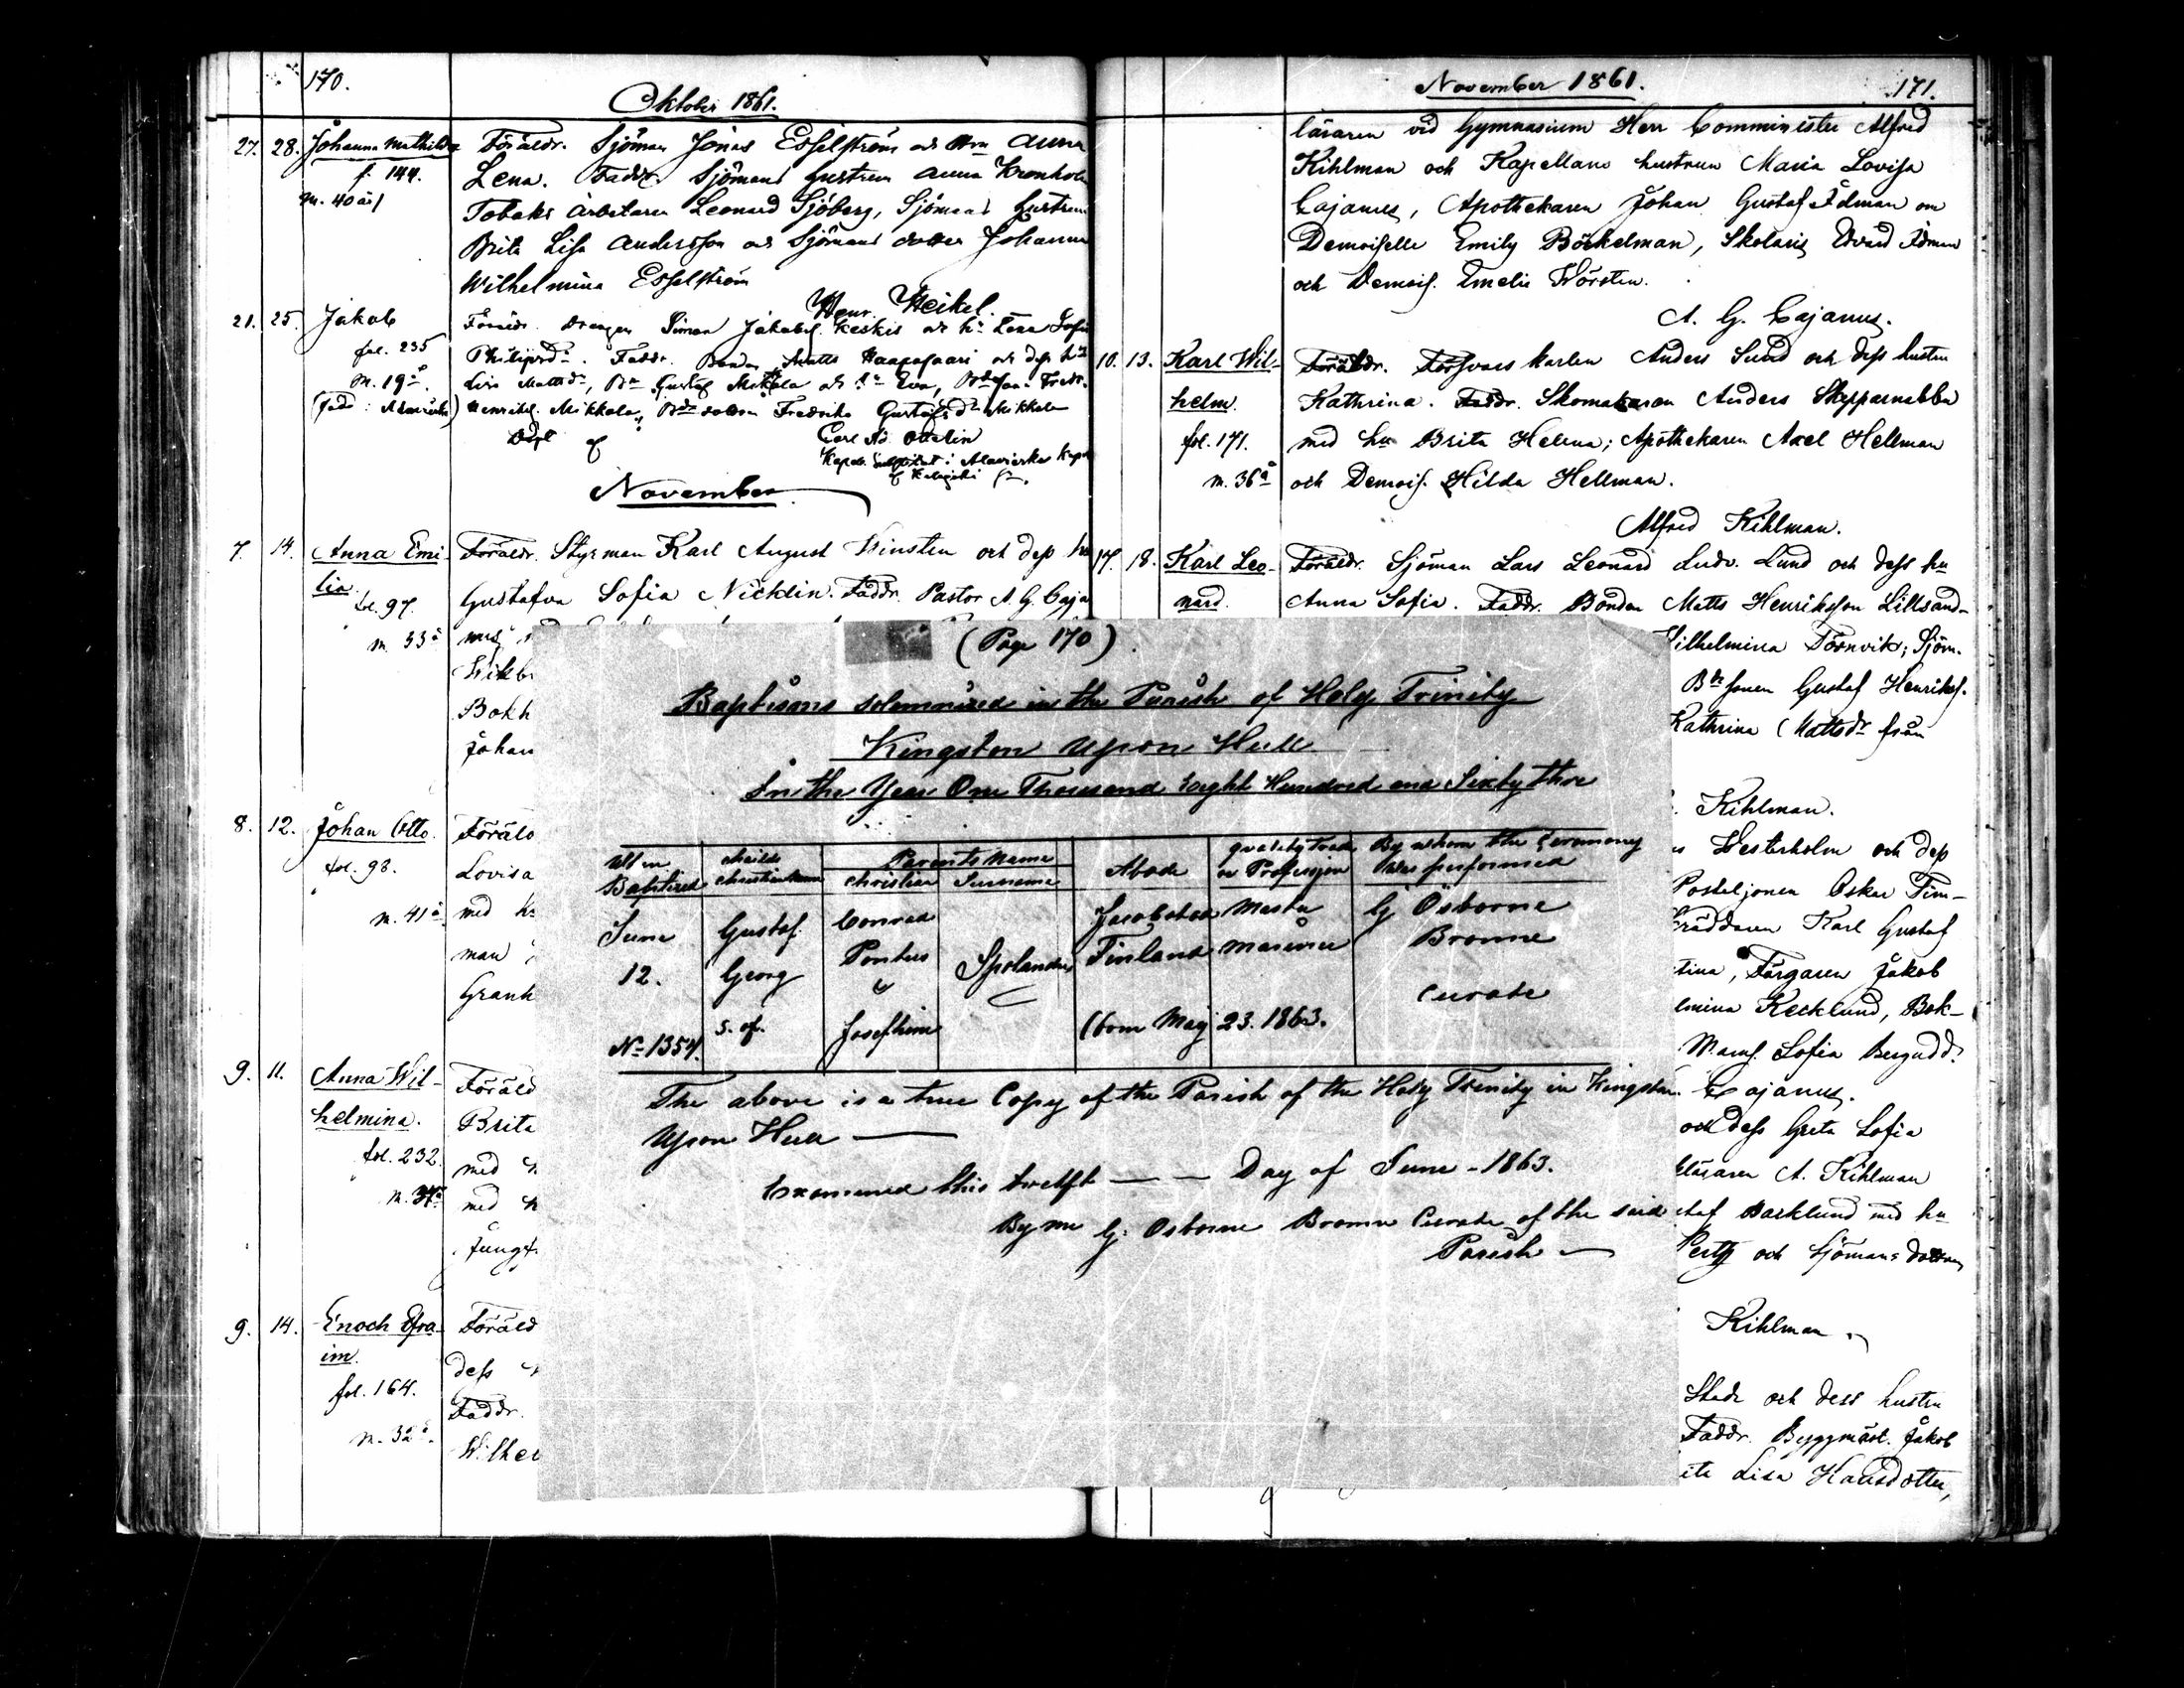 170.
Oktober 1861.
27. 28. Johanna Mathilda Föräldr. Sjöman Jonas Esselström och Anna
f. 144. Lena. Faddr. Sjömans hustrun Anna Kronholm
m. 40 år Tobaks arbetaren Leonard Sjöberg, Sjömans hustrun
Brita Lisa Andersson och Sjömans dotter Johanna
Wilhelmina Esselström
Henr. Heikel.
21. 25. Jakob Föräldr. Drängen Simon Jakobss. Keskis och hu Lena Sofia
fol. 235 Philipsdr. Faddr. Bonden Matts Haapasaari och dess hu
m. 19 å. Lisa Mattsdr, Bn Gustaf Mikkola och hu Eva, Fredr.
Henrikss. Mikkola, Fredrika Gustafsdr Mikkola
Carl Ad. Ottelin
Alavieska
November
7. 14. Anna Emi- Föräldr. Styrman Karl August Winsten och dess hu
lia. Gustafva Sofia Nicklin. Faddr. Pastor A. G. Caja
fol. 97.
m. 33 å nus
Wikb
Bokh
Johan
8. 12. Johan Otto. Föräld
fol. 98. Lovisa
m. 41 å. med h
man
Granh
9. 11. Anna Wil- Föräld
helmina. Brita
fol. 232. med
m. 37 å med
Jungf.
9. 14. Enoch Efra- Föräld
im. dess
fol. 164. Faddr.
m. 32 å. Wilhel
November 1861. 171.
läraren vid Gymnasium Herr Comminister Alfred
Kihlman och Kapellans hustrun Maria Lovisa
Cajanus, Apothekaren Johan Gustaf Idman om
Demoiselle Emily Böckelman, Skolaris Edvard Idman
och Demois. Emelie Hörsten.
A. G. Cajanus.
10. 13. Karl Wil- Föräldr. Försvars karlen Anders Sund och dess hustru
helm. Kathrina. Faddr. Skomakaren Anders Skepparnabba
fol. 171. med hu Brita Helena; Apothekaren Axel Hellman
m. 36 å och Demois. Hilda Hellman.
Alfred Kihlman.
17. 18. Karl Leo- Föräldr. Sjöman Lars Leonard Ludv. Lund och dess hu
nard. Anna Sofia. Faddr. Bonden Matts Henriksson Lillsand-
Wilhelmina Törnvik; Sjöm.
Bdesonen Gustaf Henrikss.
Kathrina Mattsdr från
Kihlman.
Westerholm och dess
Posteljonen Oskar Tim-
Skräddaren Karl Gustaf
tina, Färgaren Jakob
lmina Kecklund, Bok-
Mams. Sofia Bergudd.
Cajanus.
och dess Greta Sofia
läraren A. Kihlman
staf Backlund med hu
Perty och Sjömans dottren
Kihlman
Stade och dess hustru
Faddr. Byggmäst. Jakob
ita Lisa Hansdotter,
(Page 170).
Baptisms solemnized in the Parish of Holy Trinity
Kingston Upon Hull
In the Year One Thousand Eight Hundred and Sixty three
When Baptized Childs Christian name Parents Name Christian Surname Abode quality Trade or Profession By whom the Ceremony was performed
June Gustaf Conrad Jacobstad Master G Osborne
12. Georg Pontus Spolander Finland Mariner Browne
& Curate
No 1357. s. of. Josefhine (born May 23. 1863.
The above is a true Copy of the Parish of the Holy Trinity in Kingston
Upon Hull
Examined this twelft — — Day of June - 1863.
By me G. Osborne Browne Curate of the said
Parish —